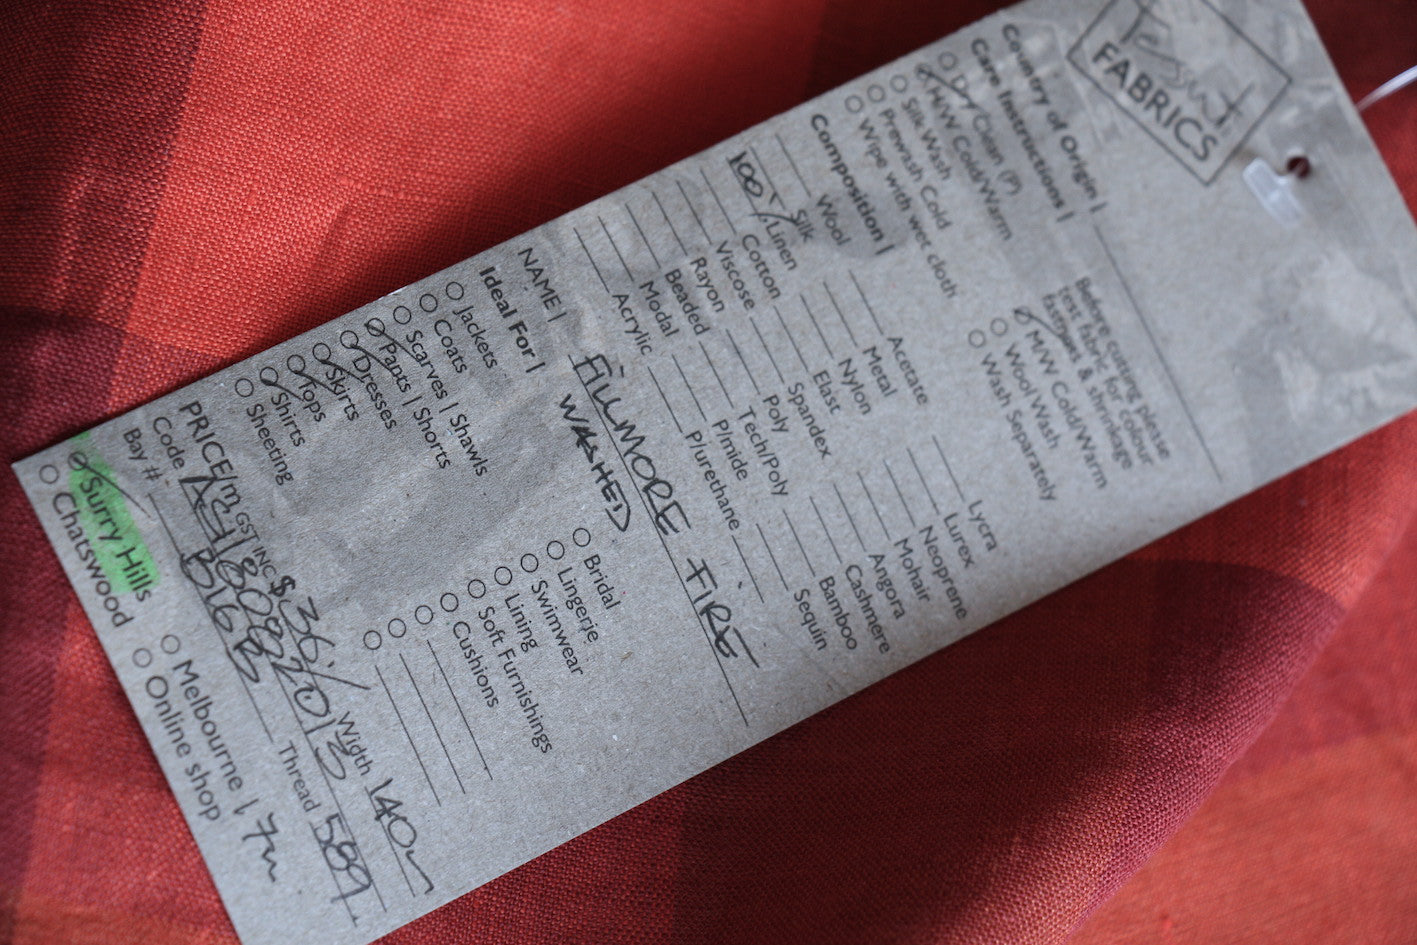 Tessuti
FABRICS
Country of Origin |
Care Instructions |
Dry Clean (P)
M/W Cold/Warm
Silk Wash
Prewash Cold
Wipe with wet cloth
Before cutting please
test fabric for colour
fastness & shrinkage
M/W Cold/Warm
Wool Wash
Wash Separately
Composition |
Wool
Silk
100% Linen
Cotton
Viscose
Rayon
Beaded
Modal
Acrylic
Acetate
Metal
Nylon
Elast
Spandex
Poly
Tech/Poly
P/mide
P/urethane
Lycra
Lurex
Neoprene
Mohair
Angora
Cashmere
Bamboo
Sequin
NAME | FILLMORE FIRE
WASHED
Ideal For |
Jackets
Coats
Scarves | Shawls
Pants | Shorts
Dresses
Skirts
Tops
Shirts
Sheeting
Bridal
Lingerie
Swimwear
Lining
Soft Furnishings
Cushions
PRICE/m GST INC $ 36/ Width 140
Code Thread 589
Bay #
Surry Hills
Chatswood
Melbourne | 7m
Online shop